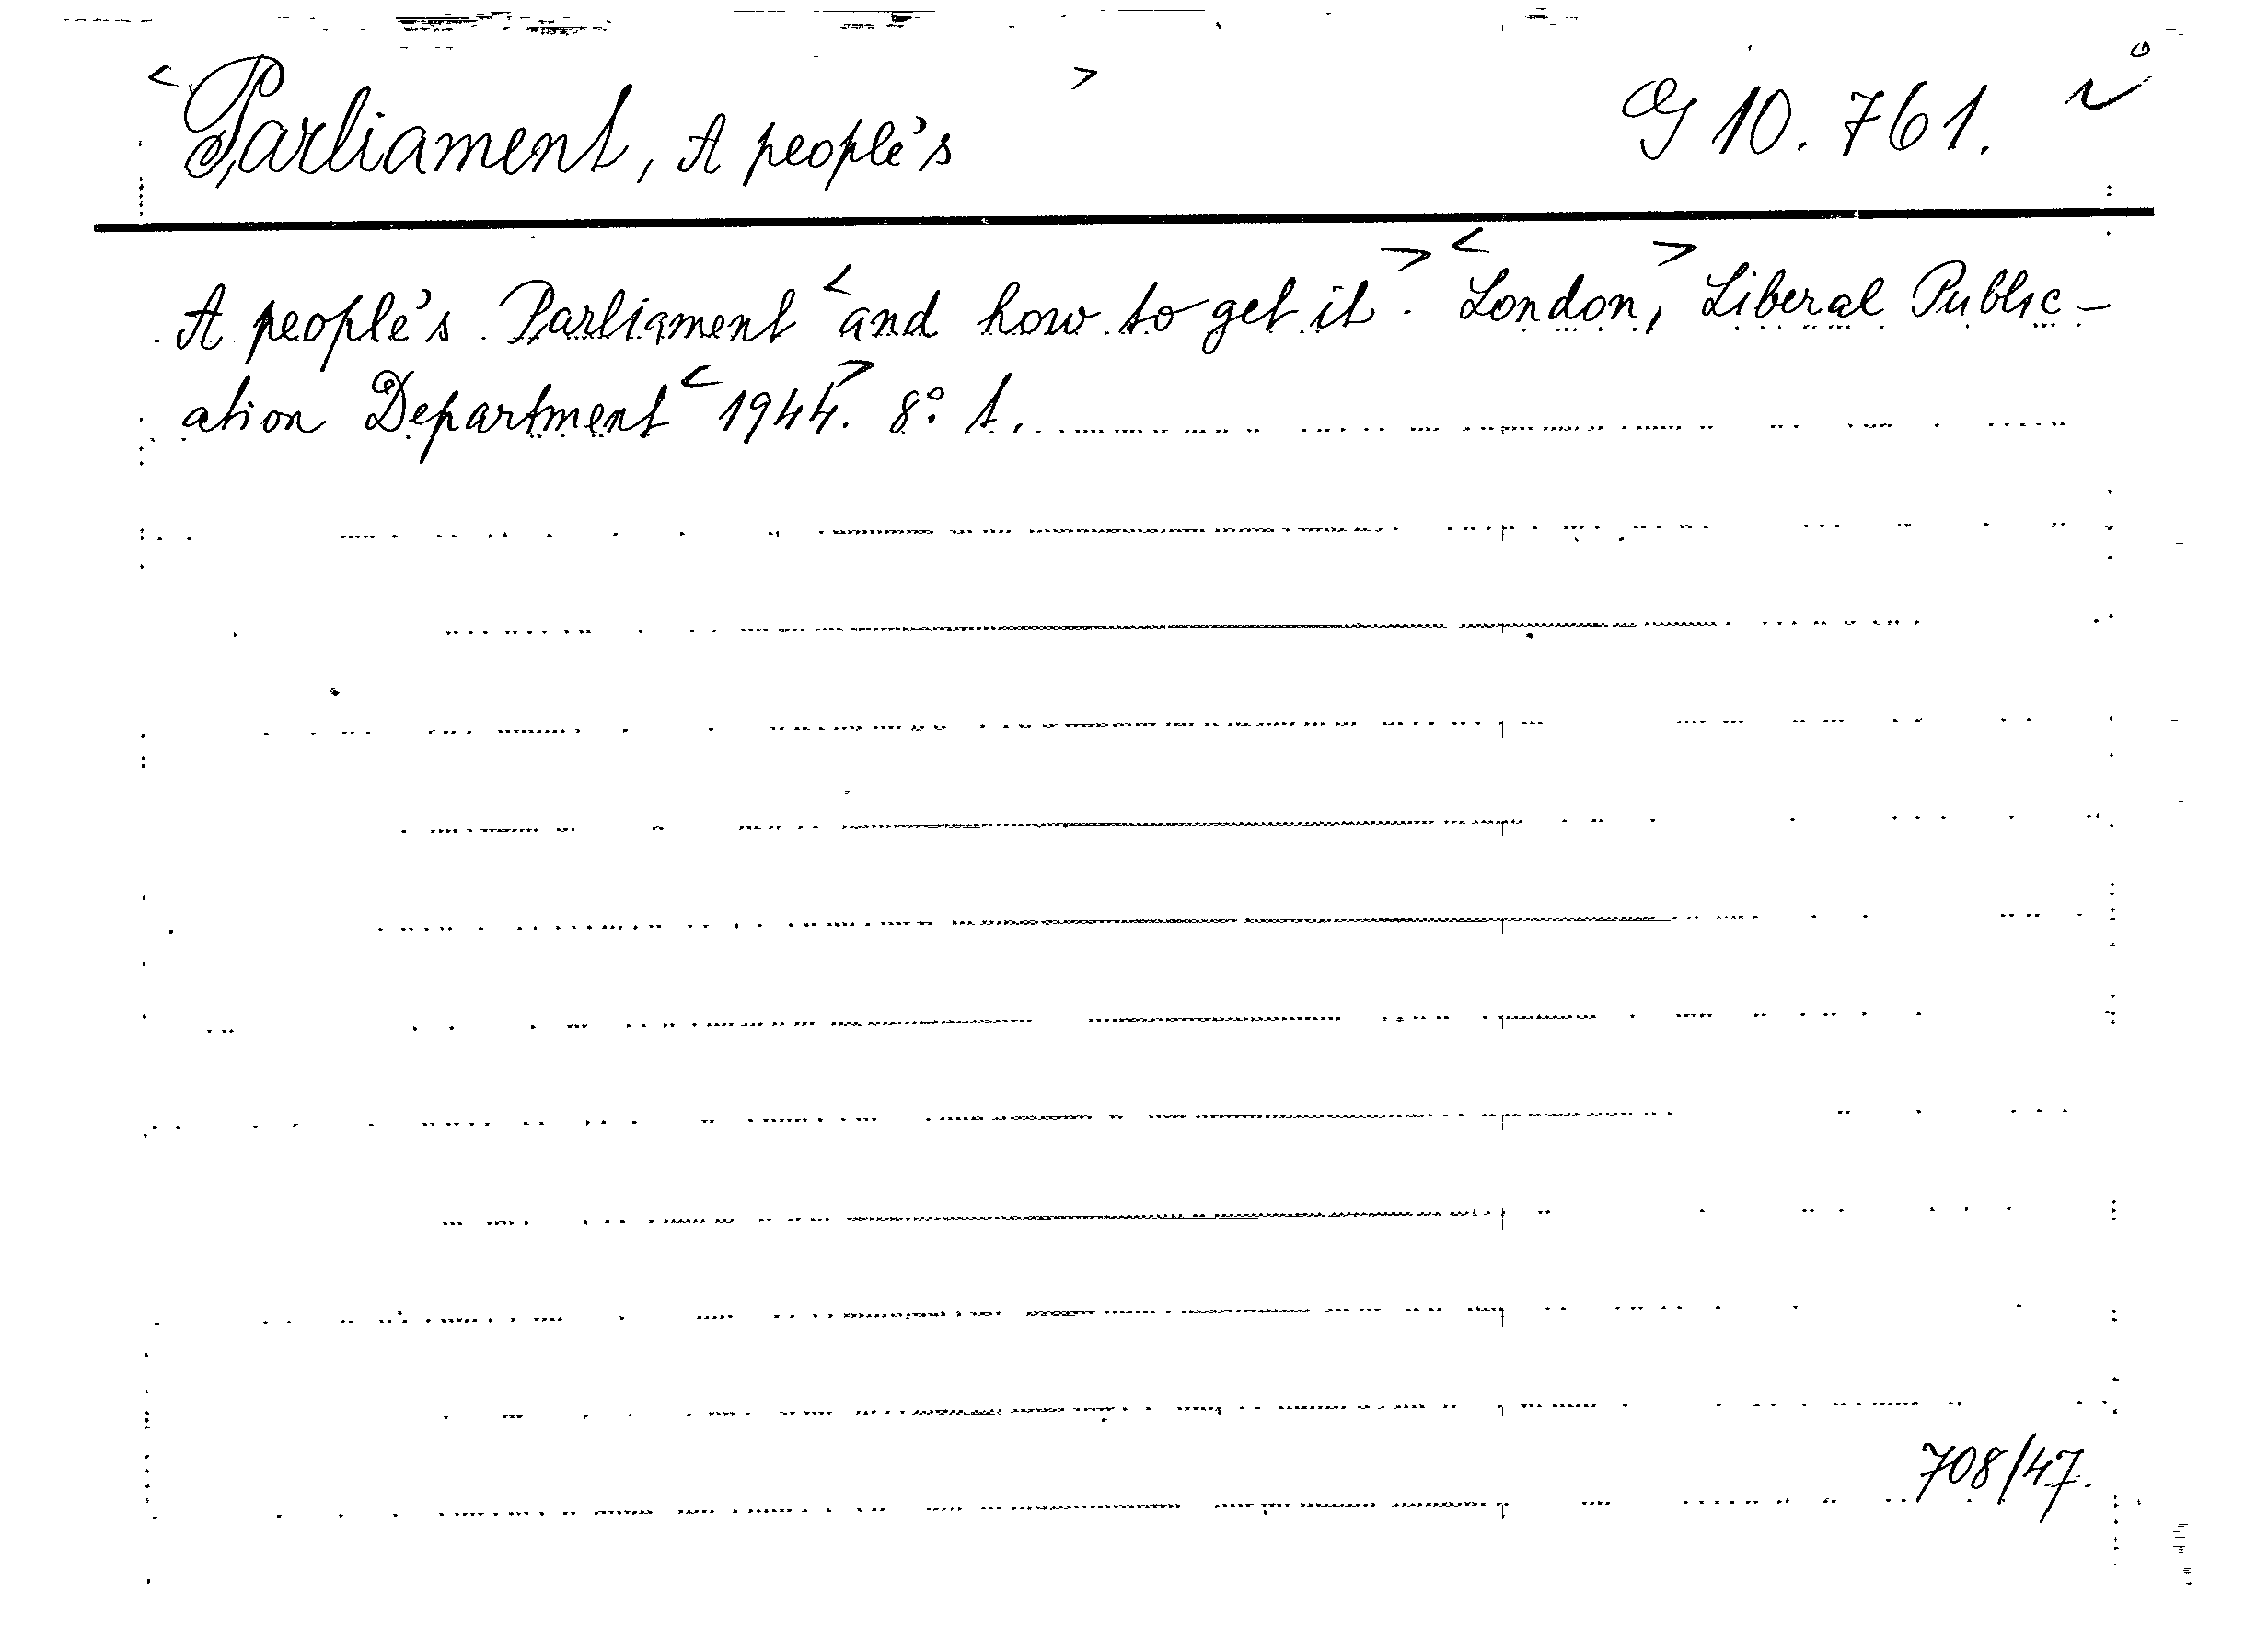 <Parliament, A people's> G 10.761.
A people's Parliament <and how to get it>. <London,> Liberal Public-
ation Department <1944>. 8° 1.
708/47.